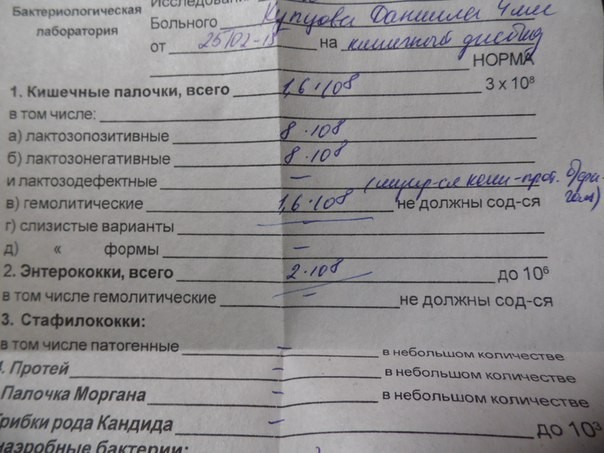 Бактериологическая
лаборатория
Больного Купцова Даниила 4 мес
от 25/02-15 на кишечный дисбиоз
НОРМА
1. Кишечные палочки, всего 1,6·10⁸ 3 х 10⁸
в том числе:
а) лактозопозитивные 8·10⁸
б) лактозонегативные 8·10⁸
и лактозодефектные –
в) гемолитические 1,6·10⁸ не должны сод-ся
г) слизистые варианты
д) « формы –
2. Энтерококки, всего 2·10⁸ до 10⁶
в том числе гемолитические – не должны сод-ся
3. Стафилококки:
в том числе патогенные – в небольшом количестве
4. Протей – в небольшом количестве
Палочка Моргана – в небольшом количестве
Грибки рода Кандида – до 10³